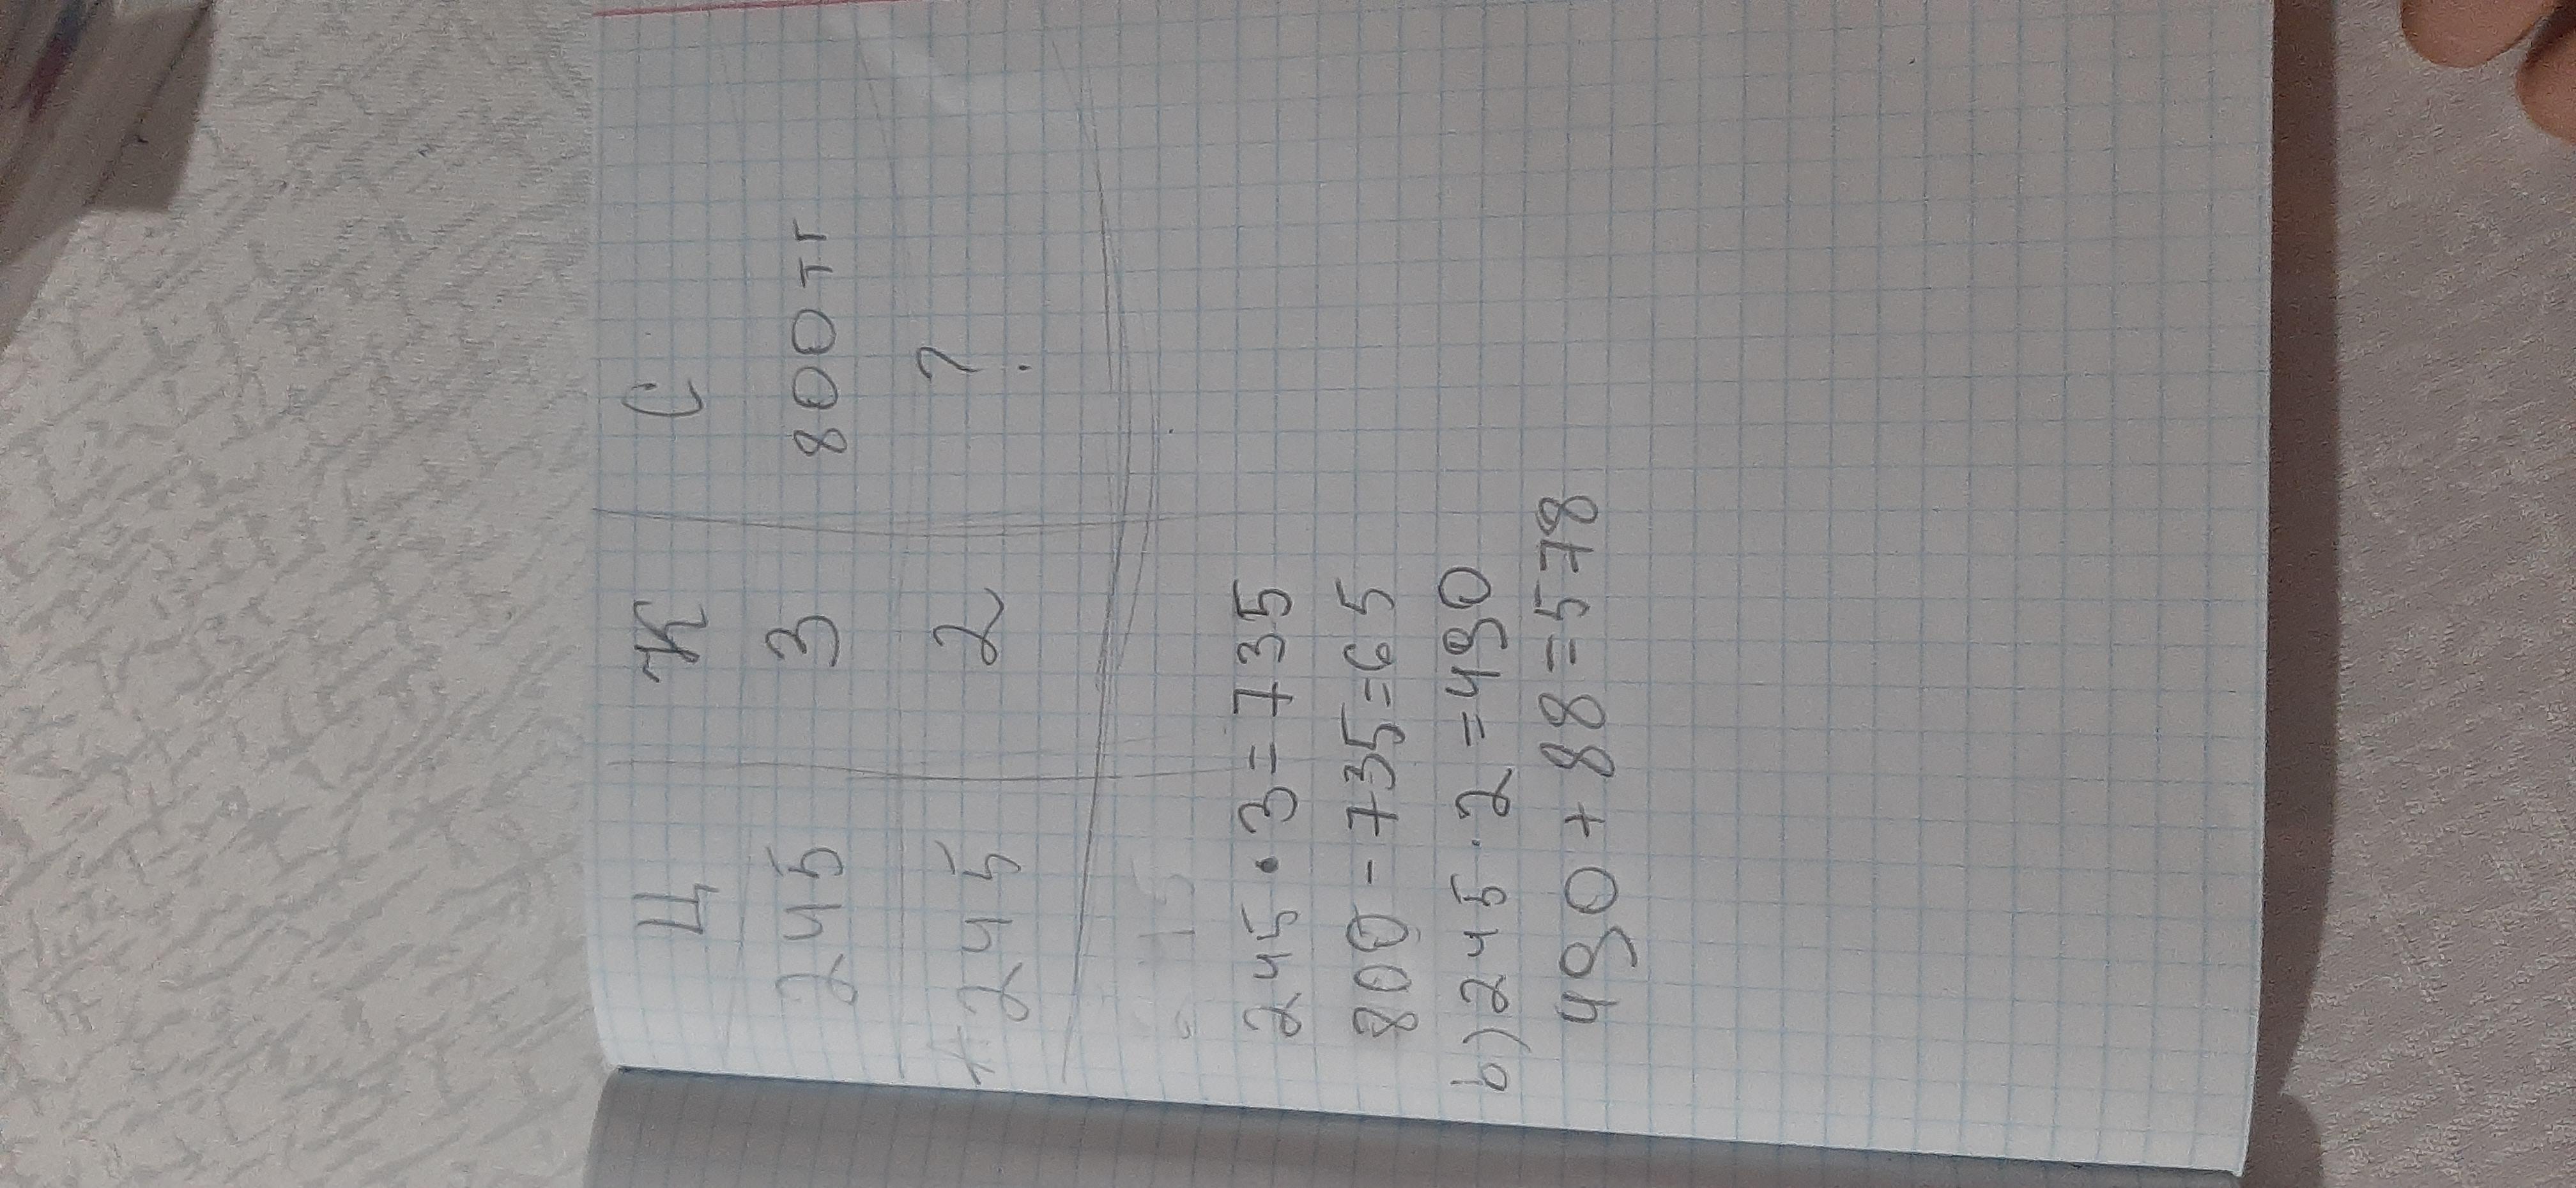 Ц К С
245 3 800тг
245 2 ?
245 · 3 = 735
800 - 735 = 65
b) 245 · 2 = 490
490 + 88 = 578